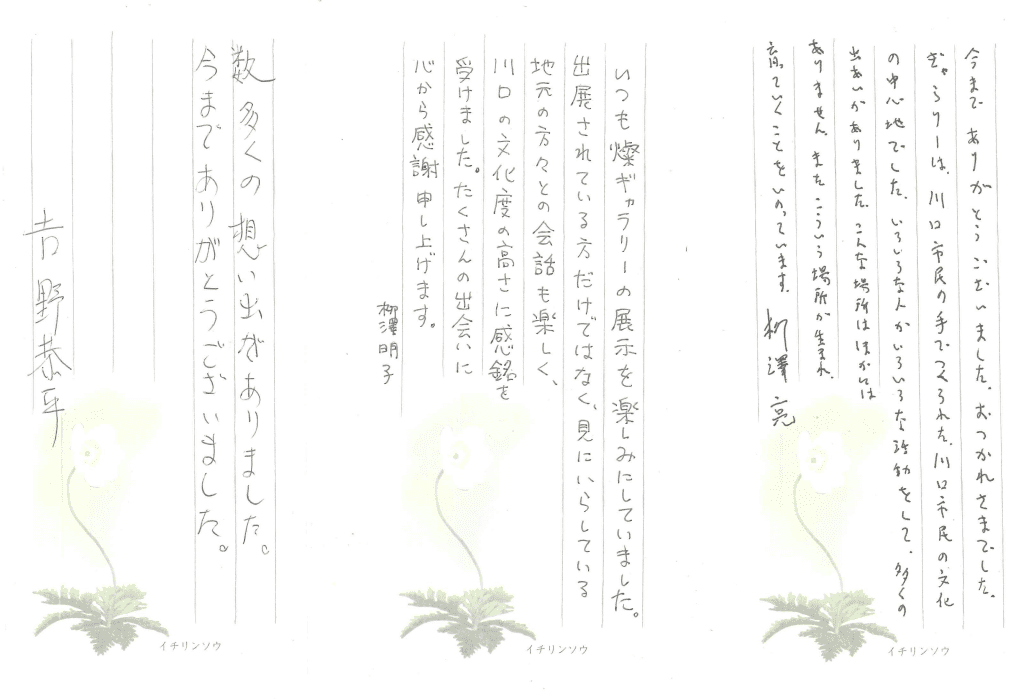 今まで ありがとうございました。おつかれさまでした。
ぎゃらりーは、川口市民の手でつくられた、川口市民の文化
の中心地でした。いろいろな人がいろいろな活動をして、多くの
出あいがありました。こんな場所はほかには
ありません。またこういう場所が生まれ、
育っていくことをいのっています。 柳澤 亮
イチリンソウ
いつも燦ギャラリーの展示を楽しみにしていました。
出展されている方だけではなく、見にいらしている
地元の方々との会話も楽しく、
川口の文化度の高さに感銘を
受けました。たくさんの出会いに
心から感謝申し上げます。
柳澤明子
イチリンソウ
数多くの想い出がありました。
今までありがとうございました。
吉野恭平
イチリンソウ